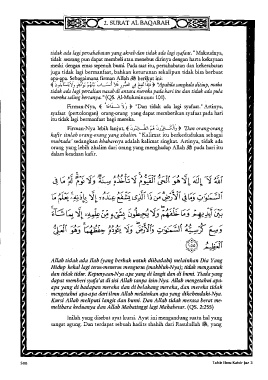 2. SURAT AL BAQARAH
tidak ada lagi persahabatan yang akrab dan tidak ada lagi syafaat." Maksudnya,
tidak seorang pun dapat membela atau menebus dirinya dengan harta kekayaan
meski dengan emas sepenuh bumi. Pada saat itu, persahabatan dan kekerabatan
juga tidak lagi bermanfaat, bahkan keturunan sekalipun tidak bisa berbuat
apa-apa. Sebagaimana firman Allah ﷻ berikut ini:
﴿ فَإِذَا نُفِخَ فِي الصُّورِ فَلَا أَنسَابَ بَيْنَهُمْ يَوْمَئِذٍ وَلَا يَتَسَاءَلُونَ ﴾ "Apabila sangkala ditiup, maka
tidak ada lagi pertalian nasab di antara mereka pada hari itu dan tidak ada pula
mereka saling bertanya." (QS. Al-Mukminuun: 101).
Firman-Nya, ﴿ وَلَا شَفَاعَةٌ ﴾ "Dan tidak ada lagi syafaat." Artinya,
syafaat (pertolongan) orang-orang yang dapat memberikan syafaat pada hari
itu tidak lagi bermanfaat bagi mereka.
Firman-Nya lebih lanjut, ﴿ وَالْكَافِرُونَ هُمُ الظَّالِمُونَ ﴾ "Dan orang-orang
kafir itulah orang-orang yang zhalim." Kalimat itu berkedudukan sebagai
mubtada' sedangkan khabarnya adalah kalimat ringkas. Artinya, tidak ada
orang yang lebih zhalim dari orang yang menghadap Allah ﷻ pada hari itu
dalam keadaan kafir.
اللَّهُ لَا إِلَٰهَ إِلَّا هُوَ الْحَيُّ الْقَيُّومُ لَا تَأْخُذُهُ سِنَةٌ وَلَا نَوْمٌ لَّهُ مَا فِي
السَّمَاوَاتِ وَمَا فِي الْأَرْضِ مَن ذَا الَّذِي يَشْفَعُ عِندَهُ إِلَّا بِإِذْنِهِ يَعْلَمُ مَا
بَيْنَ أَيْدِيهِمْ وَمَا خَلْفَهُمْ وَلَا يُحِيطُونَ بِشَيْءٍ مِّنْ عِلْمِهِ إِلَّا بِمَا شَاءَ
وَسِعَ كُرْسِيُّهُ السَّمَاوَاتِ وَالْأَرْضَ وَلَا يَئُودُهُ حِفْظُهُمَا وَهُوَ الْعَلِيُّ
الْعَظِيمُ ٢٥٥
Allah tidak ada Ilah (yang berhak untuk diibadahi) melainkan Dia Yang
Hidup kekal lagi terus-menerus mengurus (makhluk-Nya); tidak mengantuk
dan tidak tidur. Kepunyaan-Nya apa yang di langit dan di bumi. Tiada yang
dapat memberi syafa'at di sisi Allah tanpa izin-Nya. Allah mengetahui apa-
apa yang di hadapan mereka dan di belakang mereka, dan mereka tidak
mengetahui apa-apa dari ilmu Allah melainkan apa yang dikehendaki-Nya.
Kursi Allah meliputi langit dan bumi. Dan Allah tidak merasa berat me-
melihara keduanya dan Allah Mahatinggi lagi Mahabesar. (QS. 2:255)
Inilah yang disebut ayat kursi. Ayat ini mengandung suatu hal yang
sangat agung. Dan terdapat sebuah hadits shahih dari Rasulullah ﷺ, yang
Tafsir Ibnu Katsir Juz 3